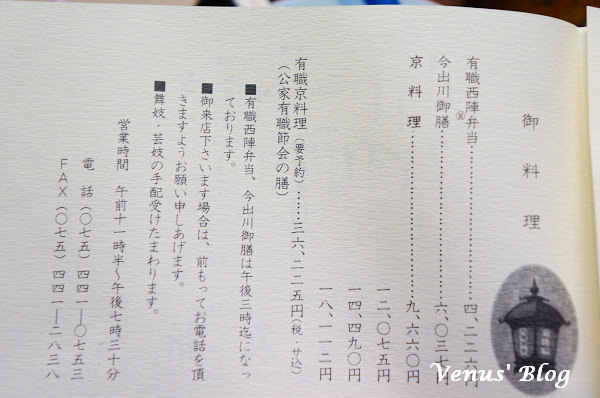 御料理
有職西陣弁当®……………………四、二二六円
今出川御膳……………………六、〇三七円
京料理……………………九、六六〇円
一二、〇七五円
一四、四九〇円
一八、一一二円
有職京料理(要予約)……三六、二二五円(税・サ込)
(公家有職節会の膳)
■有職西陣弁当、今出川御膳は午後三時迄になっ
ております。
■御来店下さいます場合は、前もってお電話を頂
きますようお願い申しあげます。
■舞妓・芸妓の手配受けたまわります。
営業時間 午前十一時半〜午後七時三十分
電話(〇七五)四四一―〇七五三
FAX(〇七五)四四一―二八三八
Venus' Blog